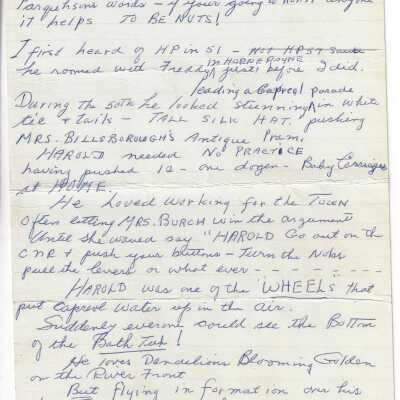 Farquhsons words - if your going to honor anyone
it helps TO BE NUTS!
I first heard of HP in 51 - Not HPST Sauce
he roomed with Freddy in HORNEPAYNE just before I did.
During the 50th he looked stunning leading a Capreol parade in white
tie & tails - TALL SILK HAT. pushing
MRS. BILLSBOROUGH'S Antique Pram.
HAROLD needed NO PRACTICE
having pushed 12 - one dozen - Baby Carriages
at HOME.
He Loved working for the TOWN
Often letting MRS. BURCH win the argument
Until she would say "HAROLD Go out on the
CNR & push your buttons - Turn the Nobs
pull the levers or what ever - - - - - - - -
HAROLD was one of the 'WHEELS that
put Capreol Water up in the air.
Suddenly everone could see the Bottom
of the Bath Tub!
He loves Dandelions Blooming Golden
on the River Front
But flying in formation over his